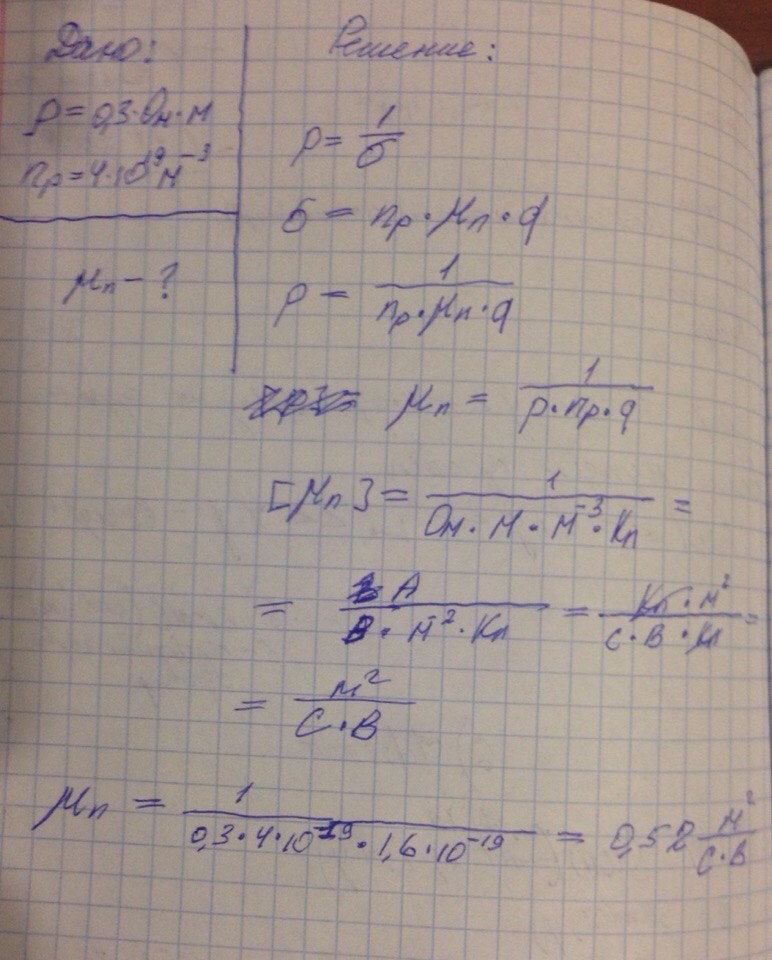 Дано:
ρ = 0,3·Ом·м
np = 4·10¹⁹ м⁻³
μn - ?
Решение:
ρ = 1/σ
σ = np·μn·q
ρ = 1/(np·μn·q)
μn = 1/(ρ·np·q)
[μn] = 1/(Ом·м·м⁻³·Кл) =
= А/(В·м⁻²·Кл) = Кл·м²/(с·В·Кл) =
= м²/(с·В)
μn = 1/(0,3·4·10¹⁹·1,6·10⁻¹⁹) = 0,52 м²/(с·В)